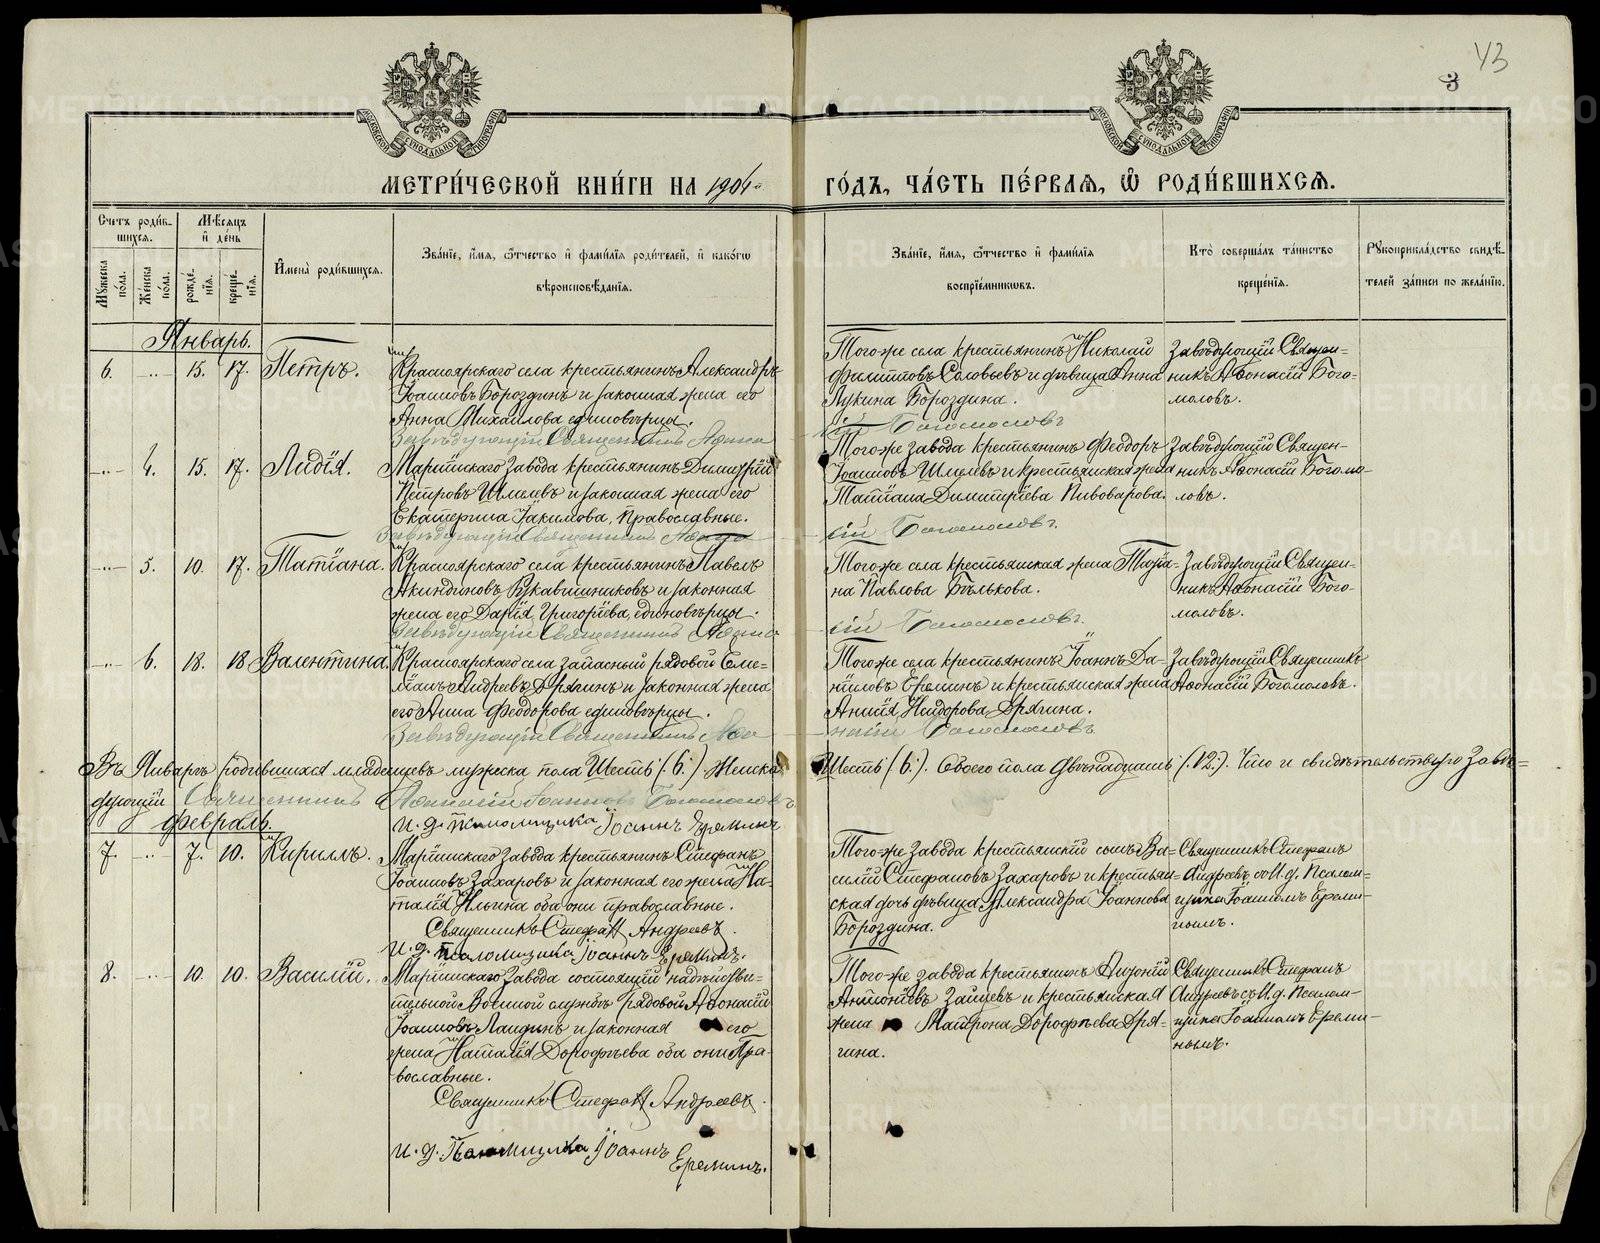 43
3
МОСКОВСКОЙ СѴНОДАЛЬНОЙ ТИПОГРАФІИ
МОСКОВСКОЙ СѴНОДАЛЬНОЙ ТИПОГРАФІИ
МЕТРИ́ЧЕСКОЙ КНИ́ГИ НА 1904 ГО́ДЪ, ЧА́СТЬ ПЕ́РВАЯ, Ѽ РОДИ́ВШИХСЯ.
Счетъ роди́в-
шихся.
Мѣ́сяцъ
и҆ де́нь
Му́жеска по́ла.
Же́нска по́ла.
рожде́нїя.
креще́нїя.
И҆мена̀ роди́вшихся.
Зва́нїе, и҆́мя, ѻ҆́тчество и҆ фами́лїя роди́телей, и҆ како́гѡ
вѣроисповѣ́данїя.
Зва́нїе, и҆́мя, ѻ҆́тчество и҆ фами́лїя
воспрїе́мниковъ.
Кто̀ соверша́лъ та́инство
креще́нїя.
Рꙋкоприкла́дство свидѣ́-
телей за́писи по жела́нїю.
Январь.
6. -"- 15. 17. Петръ.
Красноярскаго села крестьянинъ Александръ
Іоанновъ Бороздинъ и законная жена его
Анна Михайлова единовѣрцы.
Завѣдующій Священникъ Афана
сій Богомоловъ
Того-же села крестьянинъ Николай
Филипповъ Соловьевъ и дѣвица Анна
Лукина Бороздина.
Завѣдующій Священ-
никъ Афонасій Бого-
моловъ.
-"- 4. 15. 17. Лидія.
Маріинскаго завода крестьянинъ Димитрій
Петровъ Шмелевъ и законная жена его
Екатерина Іакимова, Православные.
Завѣдующій Священникъ Афана
сій Богомоловъ.
Того-же завода крестьянинъ Феодоръ
Іоанновъ Шмелевъ и крестьянская жена
Татіана Димитріева Пивоварова.
Завѣдующій Священ-
никъ Афонасій Богомо-
ловъ.
-"- 5. 10. 17. Татіана.
Красноярскаго села крестьянинъ Павелъ
Акиндиновъ Рукавишниковъ и законная
жена его Дарія Григоріева, единовѣрцы.
Завѣдующій Священникъ Афана
сій Богомоловъ.
Того-же села крестьянская жена Татіа-
на Павлова Бѣлькова.
Завѣдующій Священ-
никъ Афонасій Бого-
моловъ.
-"- 6. 18. 18 Валентина.
Красноярскаго села запасный рядовой Еме-
ліанъ Андреевъ Дрягинъ и законная жена
его Анна Феодорова единовѣрцы.
Завѣдующій Священникъ Афа
насій Богомоловъ
Того-же села крестьянинъ Іоаннъ Да-
ниловъ Ереминъ и крестьянская жена
Анисія Исидорова Дрягина.
Завѣдующій Священникъ
Афонасій Богомоловъ.
Въ Январѣ родившихся младенцевъ мужеска пола Шесть (:6:) Женска Шесть (:6:). Обоего пола двѣнадцать (:12:). Что и свидѣтельствую Завѣ-
дующій Священникъ Афанасій Іоанновъ Богомоловъ
и.д. псаломщика Іоаннъ Ереминъ
Февраль.
7. -"- 7. 10. Кириллъ.
Маріинскаго завода крестьянинъ Стефанъ
Іоанновъ Захаровъ и законная его жена На-
талія Ильина оба они православные.
Священникъ Стефанъ Андреевъ.
и.д. псаломщика Іоаннъ Ереминъ.
Того-же завода крестьянскій сынъ Ва-
силій Стефановъ Захаровъ и крестьян-
ская дочь дѣвица Александра Іоаннова
Бороздина.
Священникъ Стефанъ
Андреевъ съ И.д. Псалом-
щика Іоанномъ Ереми-
нымъ.
8. -"- 10. 10. Василій.
Маріинскаго завода состоящій на дѣйстви-
тельной Военной службѣ рядовой Афонасій
Іоанновъ Лапинъ и законная его
жена Наталія Дорофѣева оба они Пра-
вославные.
Священникъ Стефанъ Андреевъ.
и.д. Псаломщика Іоаннъ
Ереминъ.
Того-же завода крестьянинъ Антоній
Антоніевъ Зайцевъ и крестьянская
жена Матрона Дорофѣева Дря-
гина.
Священникъ Стефанъ
Андреевъ съ И.д. Псалом-
щика Іоанномъ Ереми-
нымъ.
METRIKI.GASO-URAL.RU